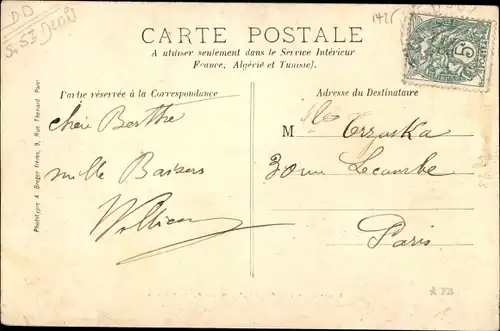 DD
S. St Denis
1425
CARTE POSTALE
A utiliser seulement dans le Service Intérieur
France, Algérie et Tunisie).
Partie réservée à la Correspondance
Adresse du Destinataire
chère Berthe
mille Baisers
William
M lle
30 rue Lecourbe
Paris
Phototypie A. Breger Frères, 9, Rue Thénard, Paris
5
A FB